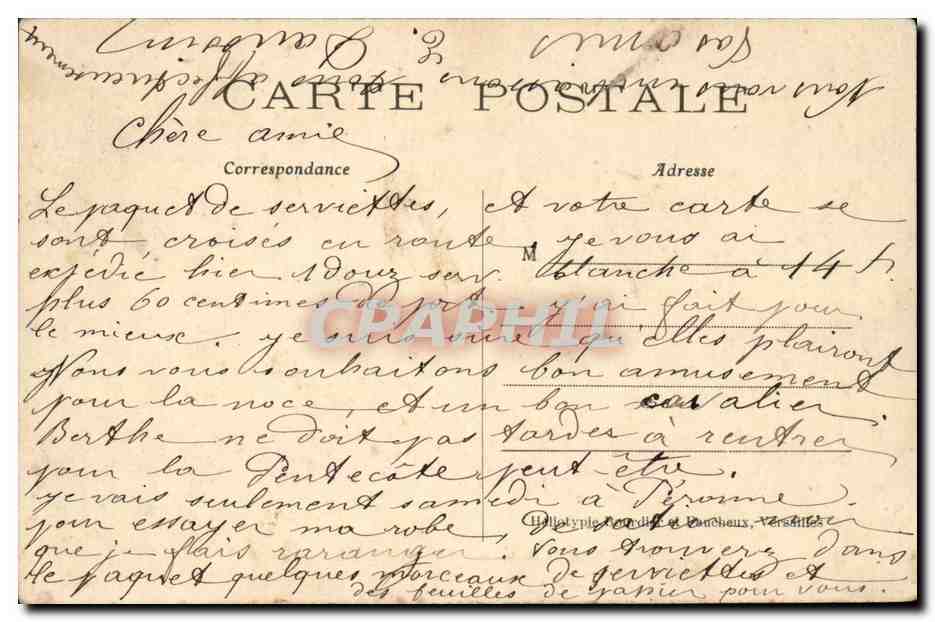 CARTE POSTALE
Chère amie
Correspondance
Adresse
Le paquet de serviettes, et votre carte se
sont croisés en route je vous ai
M
expédié hier 1 douz serv. blanche à 14 f.
plus 60 centimes de port j'ai fait pour
le mieux. je suis sure qu'elles plairont
Nous vous souhaitons bon amusement
pour la noce, et un bon cavalier.
Berthe ne doit pas tarder à rentrer
pour la Pentecôte peut-être.
je vais seulement samedi à Péronne
pour essayer ma robe,
Héliotypie Bourdier et Faucheux, Versailles
que je fais raranger. Vous trouverez dans
le paquet quelques morceaux de serviettes et
des feuilles de papier pour vous.
Nous vous embrassons tous affectueusement
Vos amis
E.
CPAPHIL